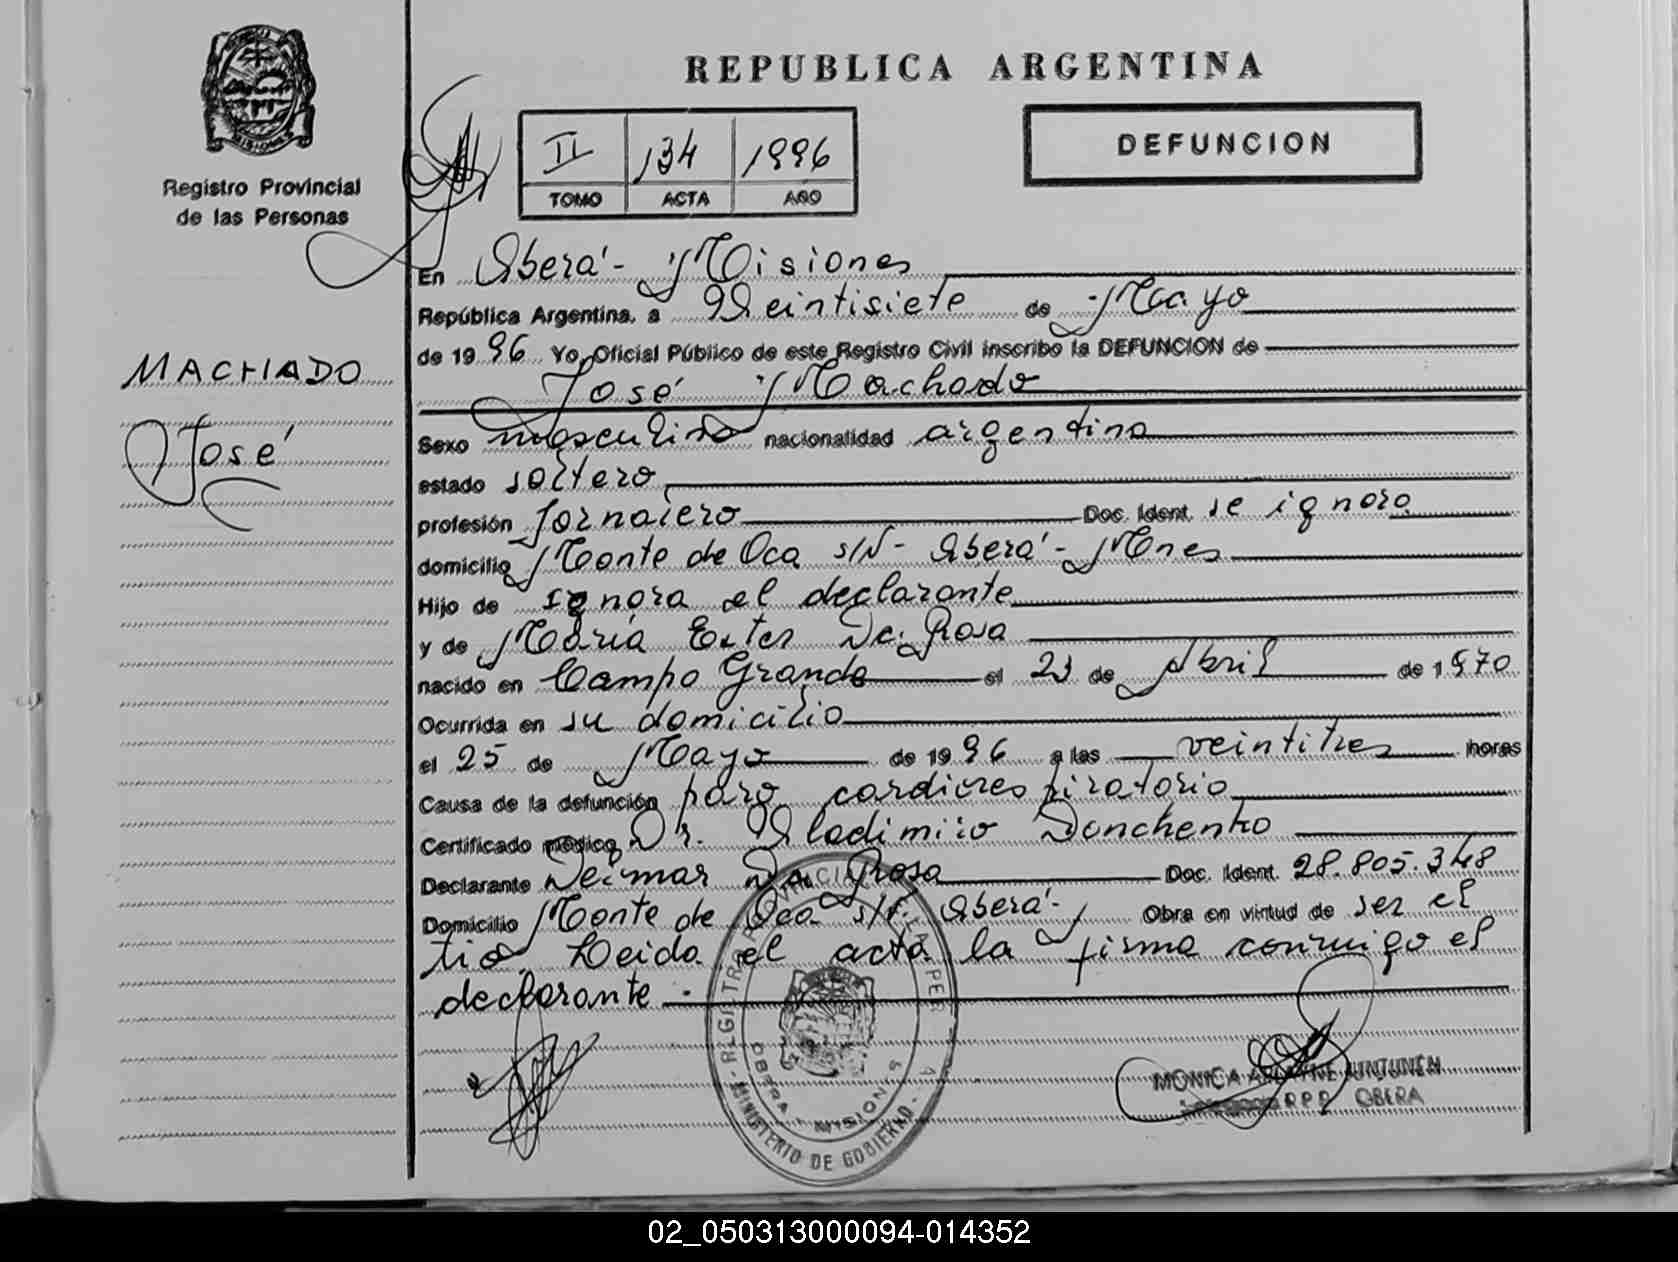 REPUBLICA ARGENTINA
MISIONES
Registro Provincial
de las Personas
II 134 1996
TOMO ACTA AÑO
DEFUNCION
MACHADO
José
En Oberá - Misiones
República Argentina, a Veintisiete de Mayo
de 19 96 Yo, Oficial Público de este Registro Civil inscribo la DEFUNCION de
José Machado
Sexo masculino nacionalidad argentina
estado soltero
profesión Jornalero Doc. Ident. se ignora
domicilio Monte de Oca s/N - Oberá - Mnes
Hijo de ignora el declarante
y de María Ester Da Rosa
nacido en Campo Grande el 23 de Abril de 1970
Ocurrida en su domicilio
el 25 de Mayo de 1996 a las veintitres horas
Causa de la defunción paro cardiorespiratorio
Certificado médico Dr. Vladimiro Donchenko
Declarante Neimar Da Rosa Doc. Ident. 28.805.348
Domicilio Monte de Oca s/N. Oberá - Obra en virtud de ser el
tio. Leida el acta la firma conmigo el
declarante.
MINISTERIO DE GOBIERNO
OBERA MISIONES
MONICA
R.P.P. OBERA
02_050313000094-014352